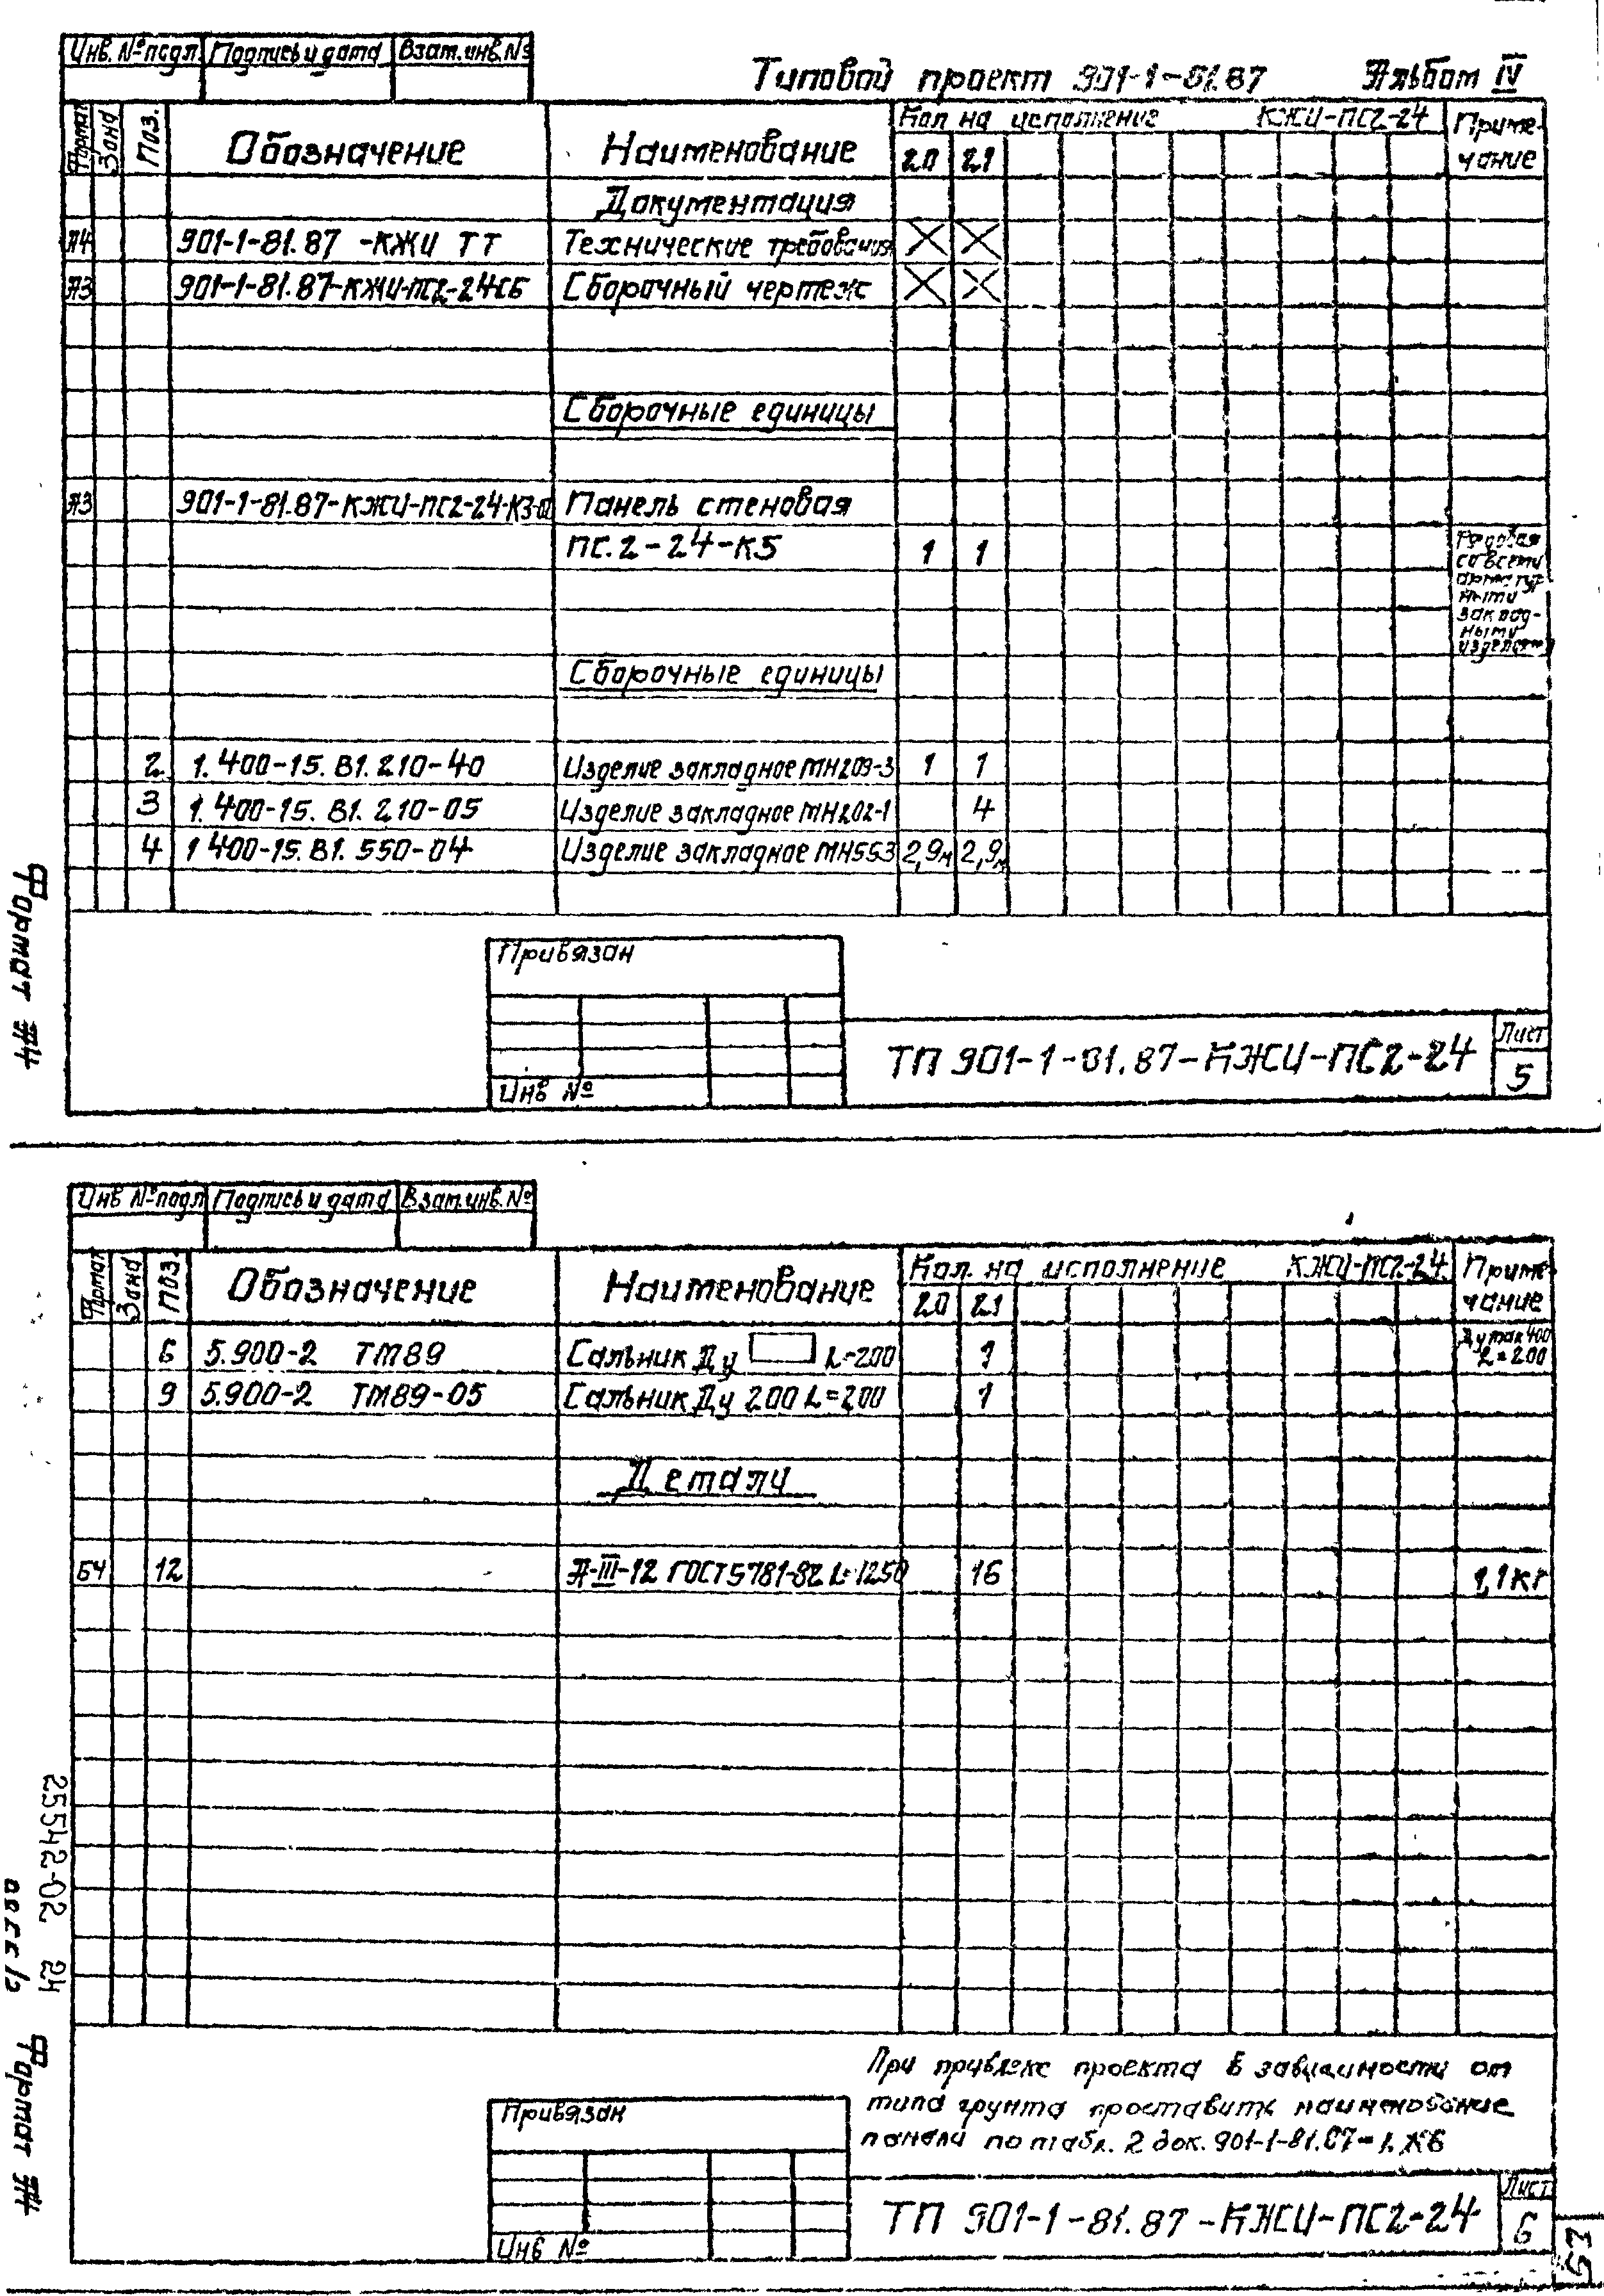 Инв. № подл. Подпись и дата Взам. инв. №
Типовой проект 901-1-81.87 Альбом IV
Формат Зона Поз. Обозначение Наименование Кол на исполнение КЖИ-ПС2-24 Приме-
чание
20 21
Документация
А4 901-1-81.87 -КЖИ ТТ Технические требования
А3 901-1-81.87-КЖИ-ПС2-24СБ Сборочный чертеж
Сборочные единицы
А3 901-1-81.87-КЖИ-ПС2-24-К3-01 Панель стеновая
ПС.2-24-К5 1 1
Рядовая
со всеми
арматур-
ными
заклад-
ными
изделиями
Сборочные единицы
2 1.400-15.В1.210-40 Изделие закладное МН209-3 1 1
3 1.400-15.В1.210-05 Изделие закладное МН202-1 4
4 1 400-15.В1.550-04 Изделие закладное МН553 2,9м 2,9м
Формат А4
Привязан
Инв №
ТП 901-1-81.87-КЖИ-ПС2-24
Лист
5
Инв № подл Подпись и дата Взам. инв. №
Формат Зона Поз. Обозначение Наименование Кол. на исполнение КЖИ-ПС2-24 Приме-
чание
20 21
6 5.900-2 ТМ89 Сальник Ду L=200 1 Ду max 400
L=200
9 5.900-2 ТМ89-05 Сальник Ду 200 L=200 1
Детали
БЧ 12 А-III-12 ГОСТ 5781-82 L=1250 16 1,1кг
25542-02 24
Формат А4
При привязке проекта в зависимости от
типа грунта проставить наименование
панели по табл. 2 док. 901-1-81.87-1.КЖ
Привязан
Инв №
ТП 901-1-81.87-КЖИ-ПС2-24
Лист
6